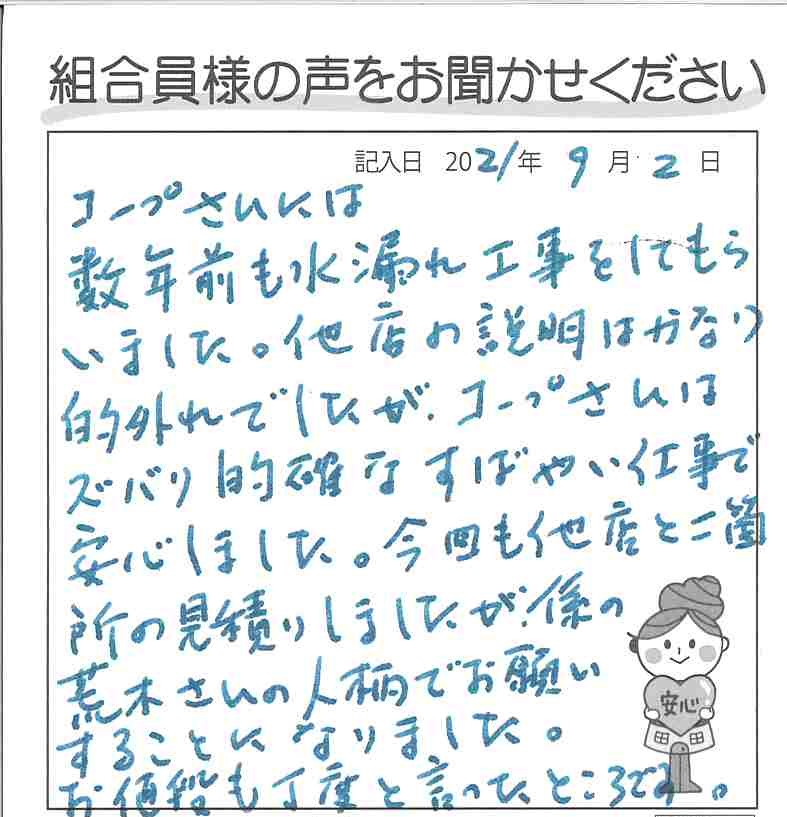 組合員様の声をお聞かせください
記入日 2021年 9月 2日
コープさんには
数年前も水漏れ工事をしてもら
いました。他店の説明はかなり
的外れでしたが、コープさんは
ズバリ的確なすばやい仕事で
安心しました。今回も他店と二箇
所の見積りしましたが、係の
荒木さんの人柄でお願い
することになりました。
お値段も丁度と言ったところです。
安心